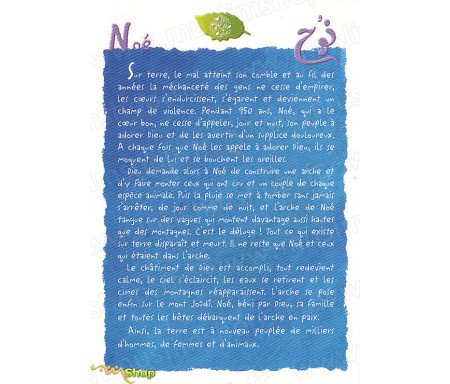 Noé
نوح
Sur terre, le mal atteint son comble et au fil des
années la méchanceté des gens ne cesse d'empirer,
les cœurs s'endurcissent, s'égarent et deviennent un
champ de violence. Pendant 950 ans, Noé, qui a le
cœur bon, ne cesse d'appeler, jour et nuit, son peuple à
adorer Dieu et de les avertir d'un supplice douloureux.
A chaque fois que Noé les appele à adorer Dieu, ils se
moquent de lui et se bouchent les oreilles.
Dieu demande alors à Noé de construire une arche et
d'y faire monter ceux qui ont cru et un couple de chaque
espèce animale. Puis la pluie se met à tomber sans jamais
s'arrêter, de jour comme de nuit, et l'arche de Noé
tangue sur des vagues qui montent davantage aussi hautes
que des montagnes. C'est le déluge ! Tout ce qui existe
sur terre disparaît et meurt. Il ne reste que Noé et ceux
qui étaient dans l'arche.
Le châtiment de Dieu est accompli, tout redevient
calme, le ciel s'éclaircit, les eaux se retirent et les
cimes des montagnes réapparaissent. L'arche se pose
enfin sur le mont Joûdî. Noé, béni par Dieu, sa famille
et toutes les bêtes débarquent de l'arche en paix.
Ainsi, la terre est à nouveau peuplée de milliers
d'hommes, de femmes et d'animaux.
Shop